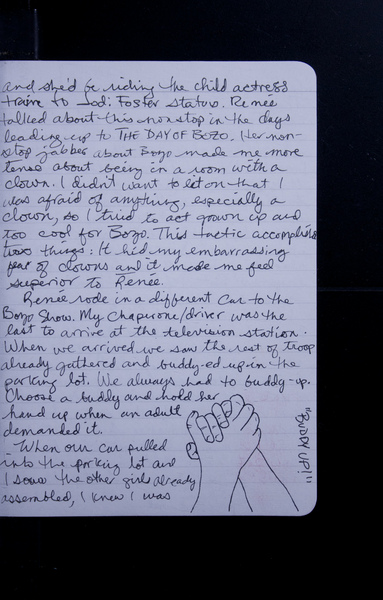 and she'd be riding the child actress
train to Jodi Foster status. Renée
talked about this nonstop in the days
leading up to THE DAY OF BOZO. Her non-
stop jabber about Bozo made me more
tense about being in a room with a
clown. I didn't want to let on that I
was afraid of anything, especially a
clown, so I tried to act grown up and
too cool for Bozo. This tactic accomplished
two things: It hid my embarrassing
fear of clowns and it made me feel
superior to Renée.
Renée rode in a different car to the
Bozo Show. My chaperone/driver was the
last to arrive at the television station.
When we arrived we saw the rest of troop
already gathered and buddy-ed up in the
parking lot. We always had to buddy-up.
Choose a buddy and hold her
hand up when an adult
demanded it.
When our car pulled
into the parking lot and
I saw the other girls already
assembled, I knew I was
"BUDDY UP!"